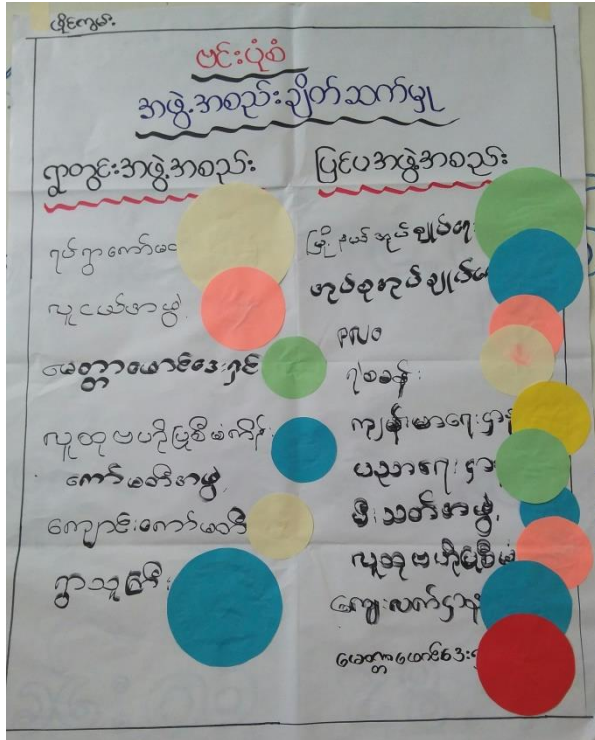 ဖိုင်ကျမ်း
ဗင်းပုံစံ
အဖွဲ့အစည်းချိတ်ဆက်မှု
ရွာတွင်းအဖွဲ့အစည်း
ရပ်ရွာကော်မတီ
လူငယ်အဖွဲ့
မေတ္တာ
လူထုဗဟိုပြုစီမံကိန်း
ကော်မတီအဖွဲ့
ကျောင်းကော်မတီ
ရွာသူကြီး
ပြင်ပအဖွဲ့အစည်း
မြို့နယ်အုပ်ချုပ်ရေး
အုပ်စုအုပ်ချုပ်
ရပ်စခန်း
ကျန်းမာရေးဌာန
ပညာရေးဌာန
မီးသတ်အဖွဲ့
လူထုဗဟိုပြုစီမံ
ကျေးလက်ဌာန
မေတ္တာ